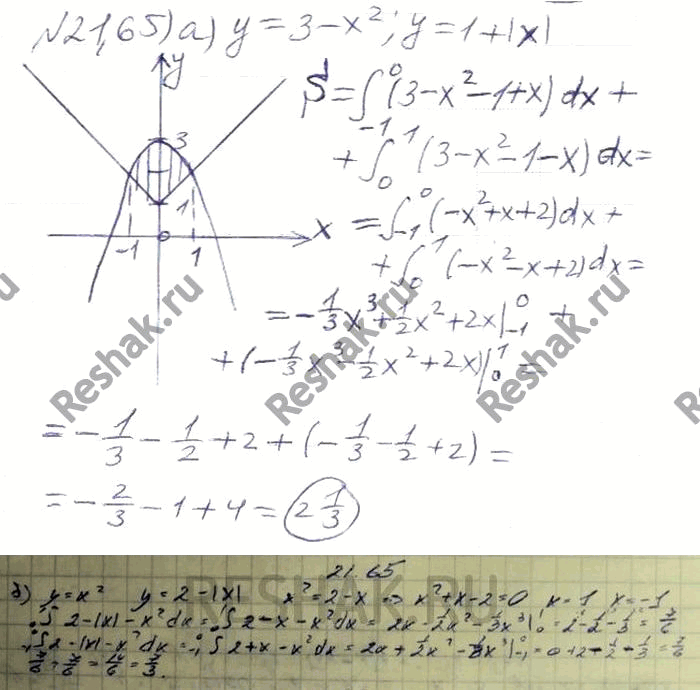 №21,65) а) y = 3 - x²; y = 1 + |x|
y
3
1
-1 0 1
x
S = ∫₋₁⁰ (3 - x² - 1 + x) dx +
+ ∫₀¹ (3 - x² - 1 - x) dx =
= ∫₋₁⁰ (-x² + x + 2) dx +
+ ∫₀¹ (-x² - x + 2) dx =
= -1/3 x³ + 1/2 x² + 2x |₋₁⁰ +
+ (-1/3 x³ - 1/2 x² + 2x) |₀¹ =
= -1/3 - 1/2 + 2 + (-1/3 - 1/2 + 2) =
= -2/3 - 1 + 4 = 2 1/3
Reshak.ru
Reshak.ru
Reshak.ru
21.65
RESHAK.RU
б) y = x² y = 2 - |x| x² = 2 - x ⇒ x² + x - 2 = 0 x = 1 x = -1
₀∫¹ 2 - |x| - x² dx = ₀∫¹ 2 - x - x² dx = 2x - 1/2 x² - 1/3 x³ |₀¹ = 2 - 1/2 - 1/3 = 7/6
₋₁∫⁰ 2 - |x| - x² dx = ₋₁∫⁰ 2 + x - x² dx = 2x + 1/2 x² - 1/3 x³ |₋₁⁰ = 0 + 2 - 1/2 - 1/3 = 7/6
7/6 + 7/6 = 14/6 = 7/3.